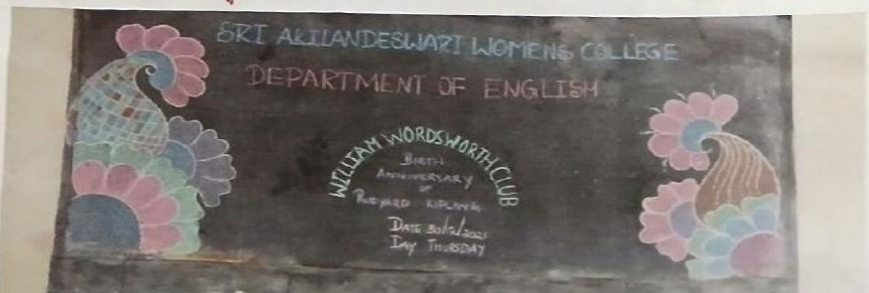 SRI AKILANDESWARI WOMENS COLLEGE
DEPARTMENT OF ENGLISH
WILLIAM WORDSWORTH CLUB
BIRTH
ANNIVERSARY
OF
RUDYARD KIPLING
DATE 30/12/2021
DAY THURSDAY